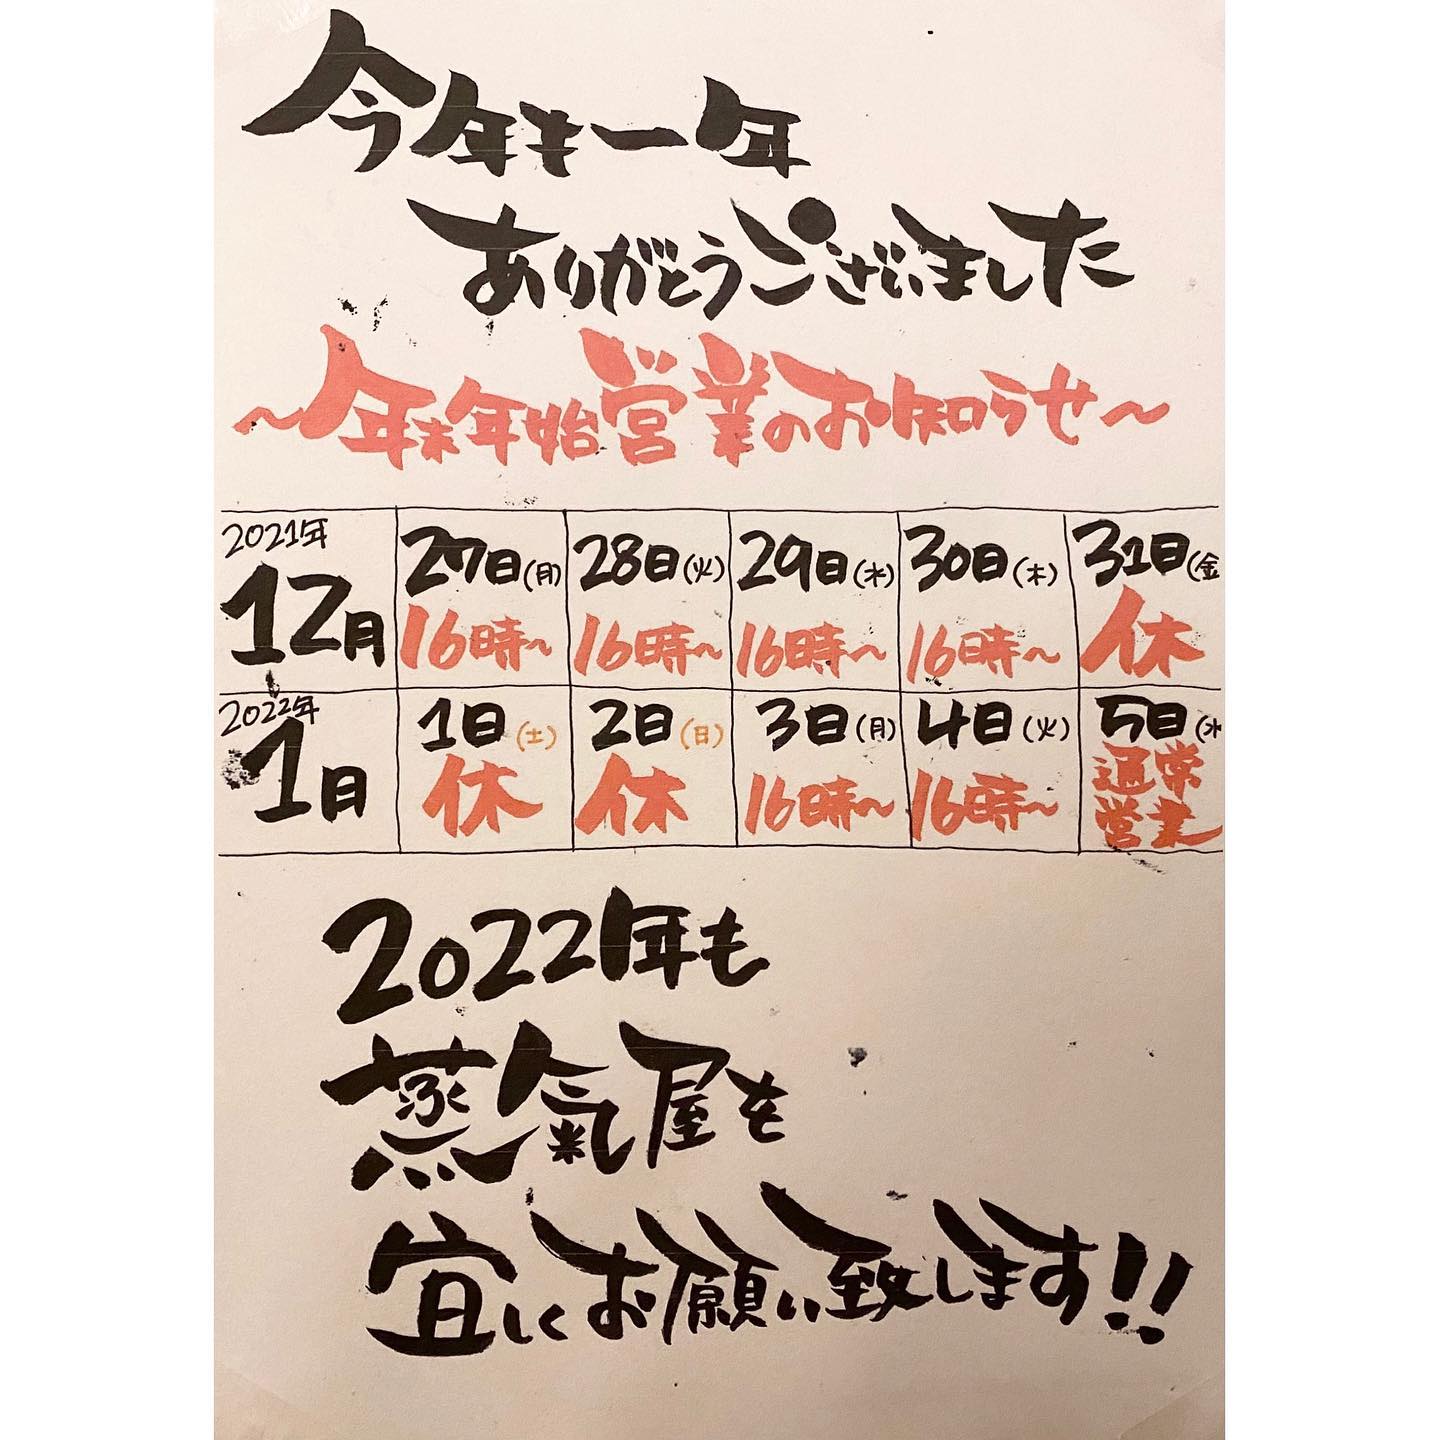 今年も一年
ありがとうございました
～年末年始営業のお知らせ～
2021年 12月 27日(月) 16時～ 28日(火) 16時～ 29日(水) 16時～ 30日(木) 16時～ 31日(金 休
2022年 1月 1日(土) 休 2日(日) 休 3日(月) 16時～ 4日(火) 16時～ 5日(水 通常営業
2022年も
蒸氣屋を
宜しくお願い致します!!